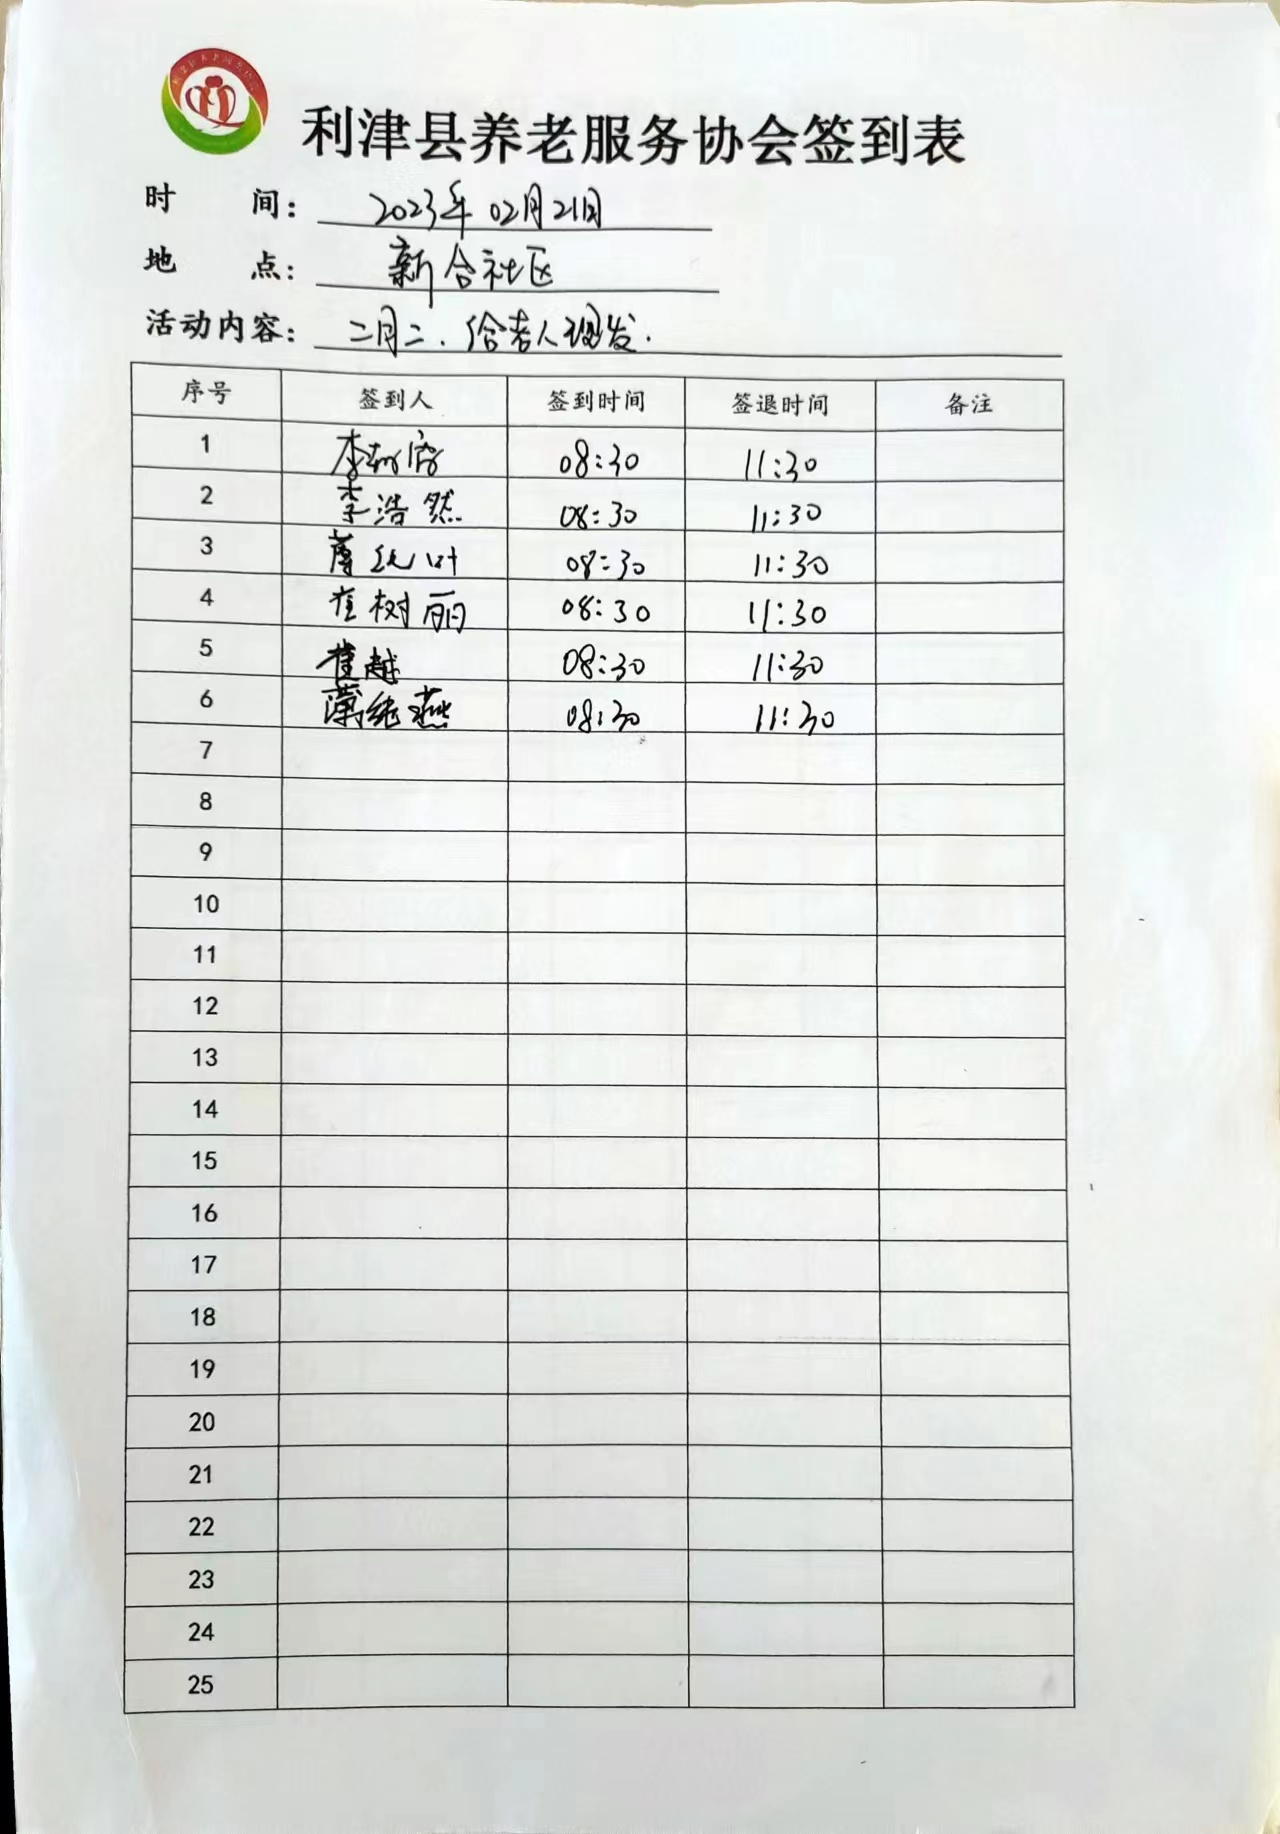 利津县养老服务协会签到表
时 间： 2023年02月21日
地 点： 新合社区
活动内容： 二月二．给老人理发．
序号 签到人 签到时间 签退时间 备注
1 李 08:30 11:30
2 李浩然 08:30 11:30
3 08:30 11:30
4 崔树丽 08:30 11:30
5 崔越 08:30 11:30
6 燕 08:30 11:30
7
8
9
10
11
12
13
14
15
16
17
18
19
20
21
22
23
24
25